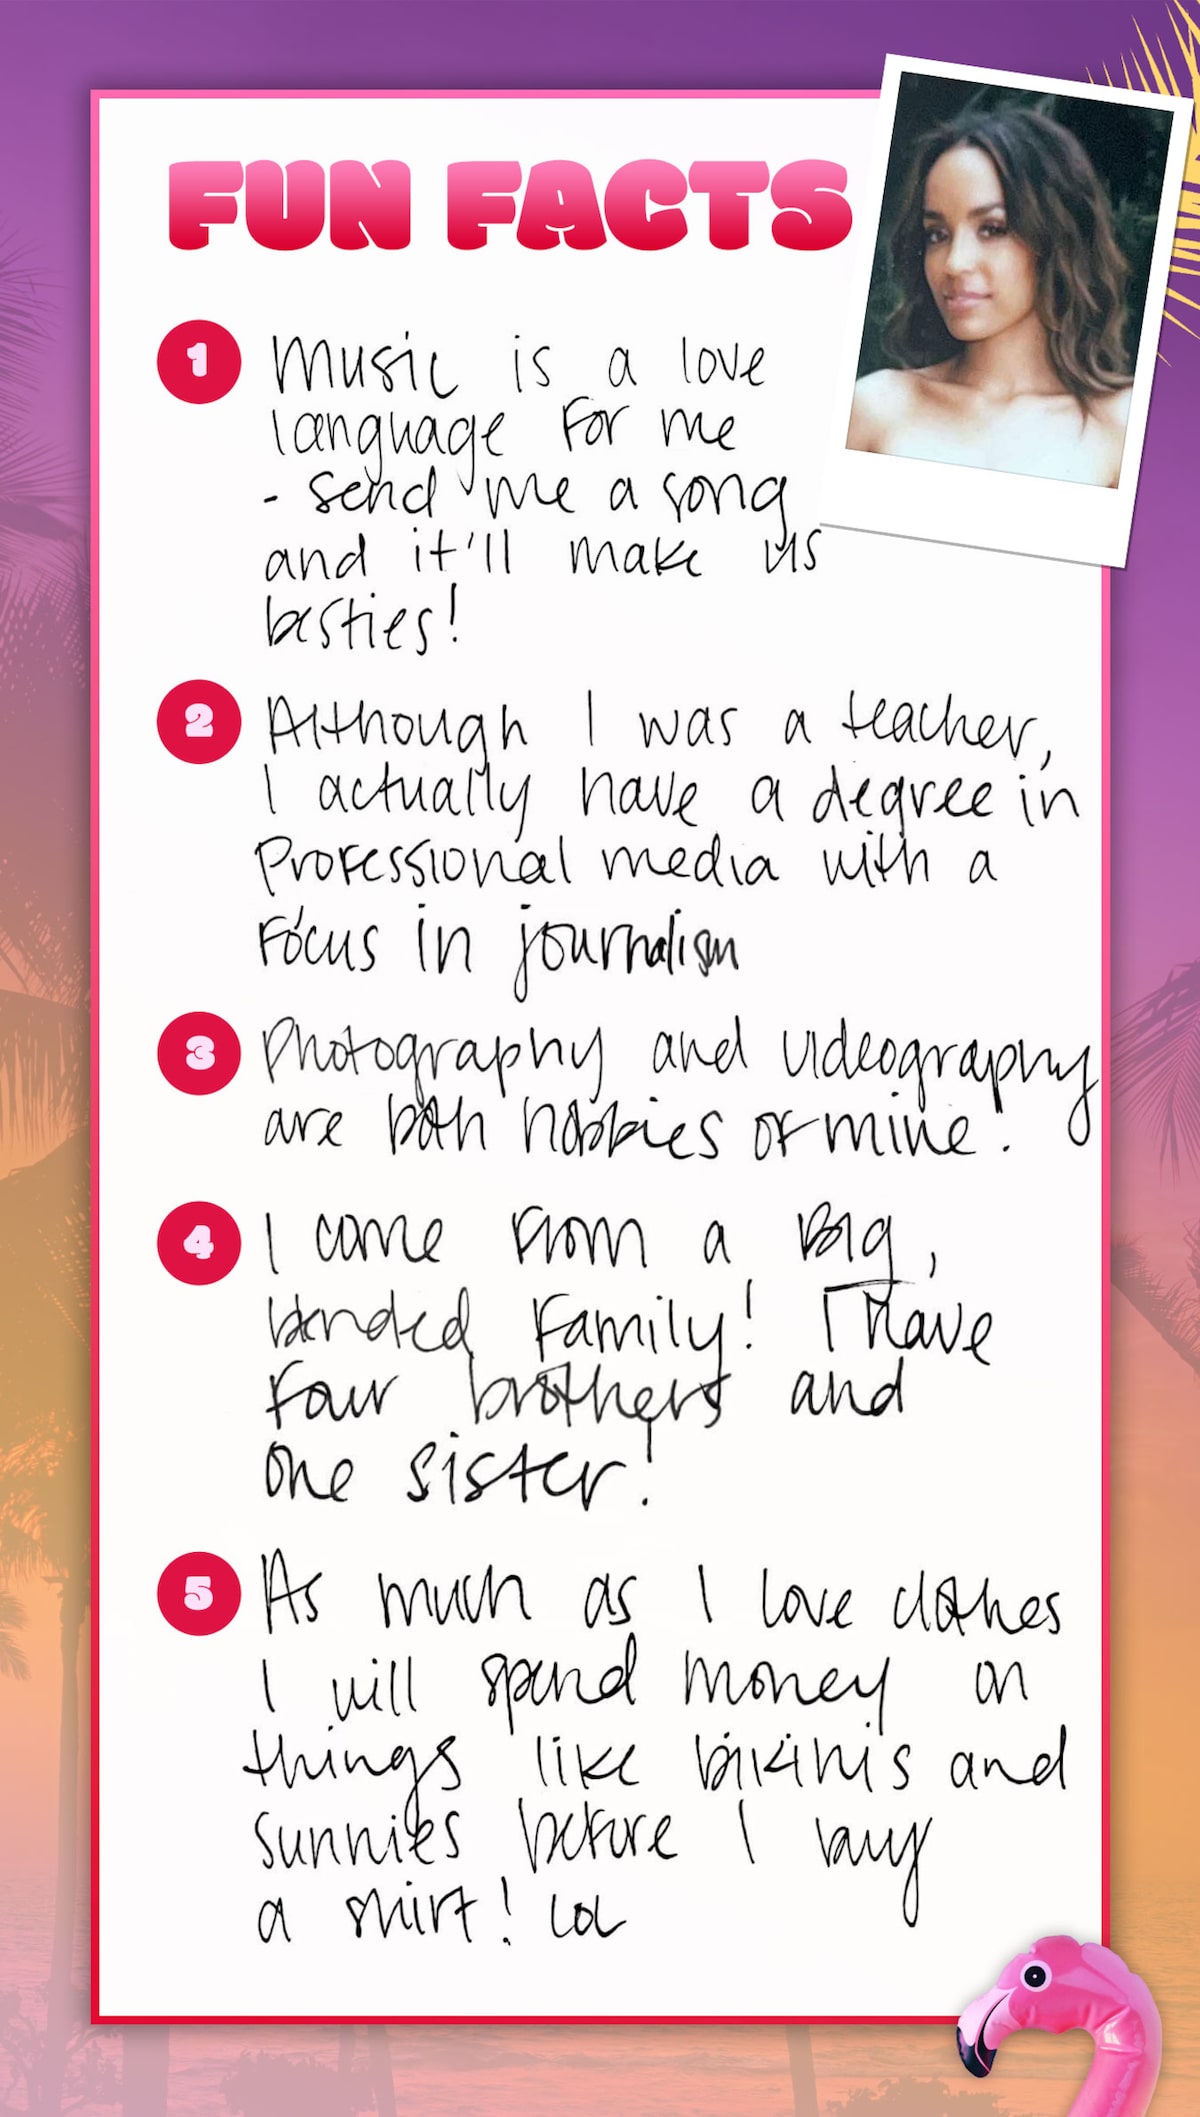 FUN FACTS
1 Music is a love
language for me
- send me a song
and it'll make us
besties!
2 Although I was a teacher,
I actually have a degree in
Professional media with a
focus in journalism
3 Photography and videography
are both hobbies of mine!
4 I come from a BIG,
blended family! I have
four brothers and
one sister!
5 As much as I love clothes
I will spend money on
things like bikinis and
sunnies before I buy
a shirt! LOL